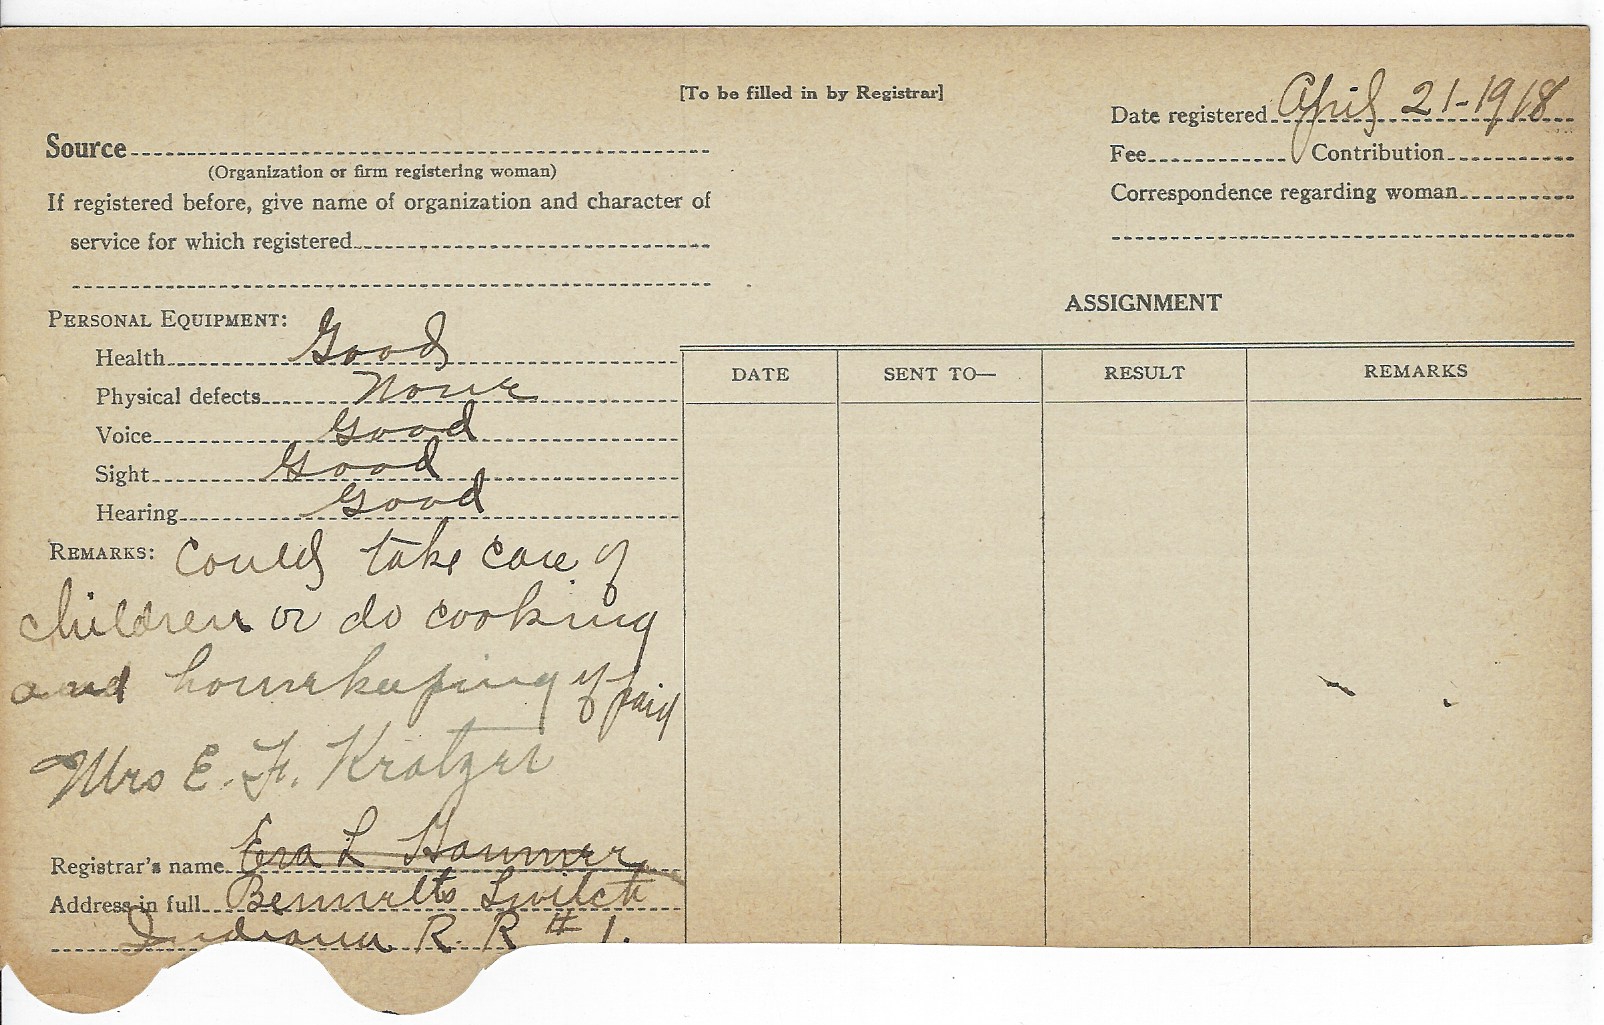 [To be filled in by Registrar]
Date registered April 21-1918
Source
(Organization or firm registering woman)
Fee Contribution
If registered before, give name of organization and character of
service for which registered
Correspondence regarding woman
ASSIGNMENT
DATE SENT TO— RESULT REMARKS
PERSONAL EQUIPMENT:
Health Good
Physical defects None
Voice Good
Sight Good
Hearing Good
REMARKS: Could take care of
children or do cooking
and housekeeping if paid
Mrs E. F. Kratzer
Registrar's name L
Address in full Bennetts Switch
Indiana R. R # 1.